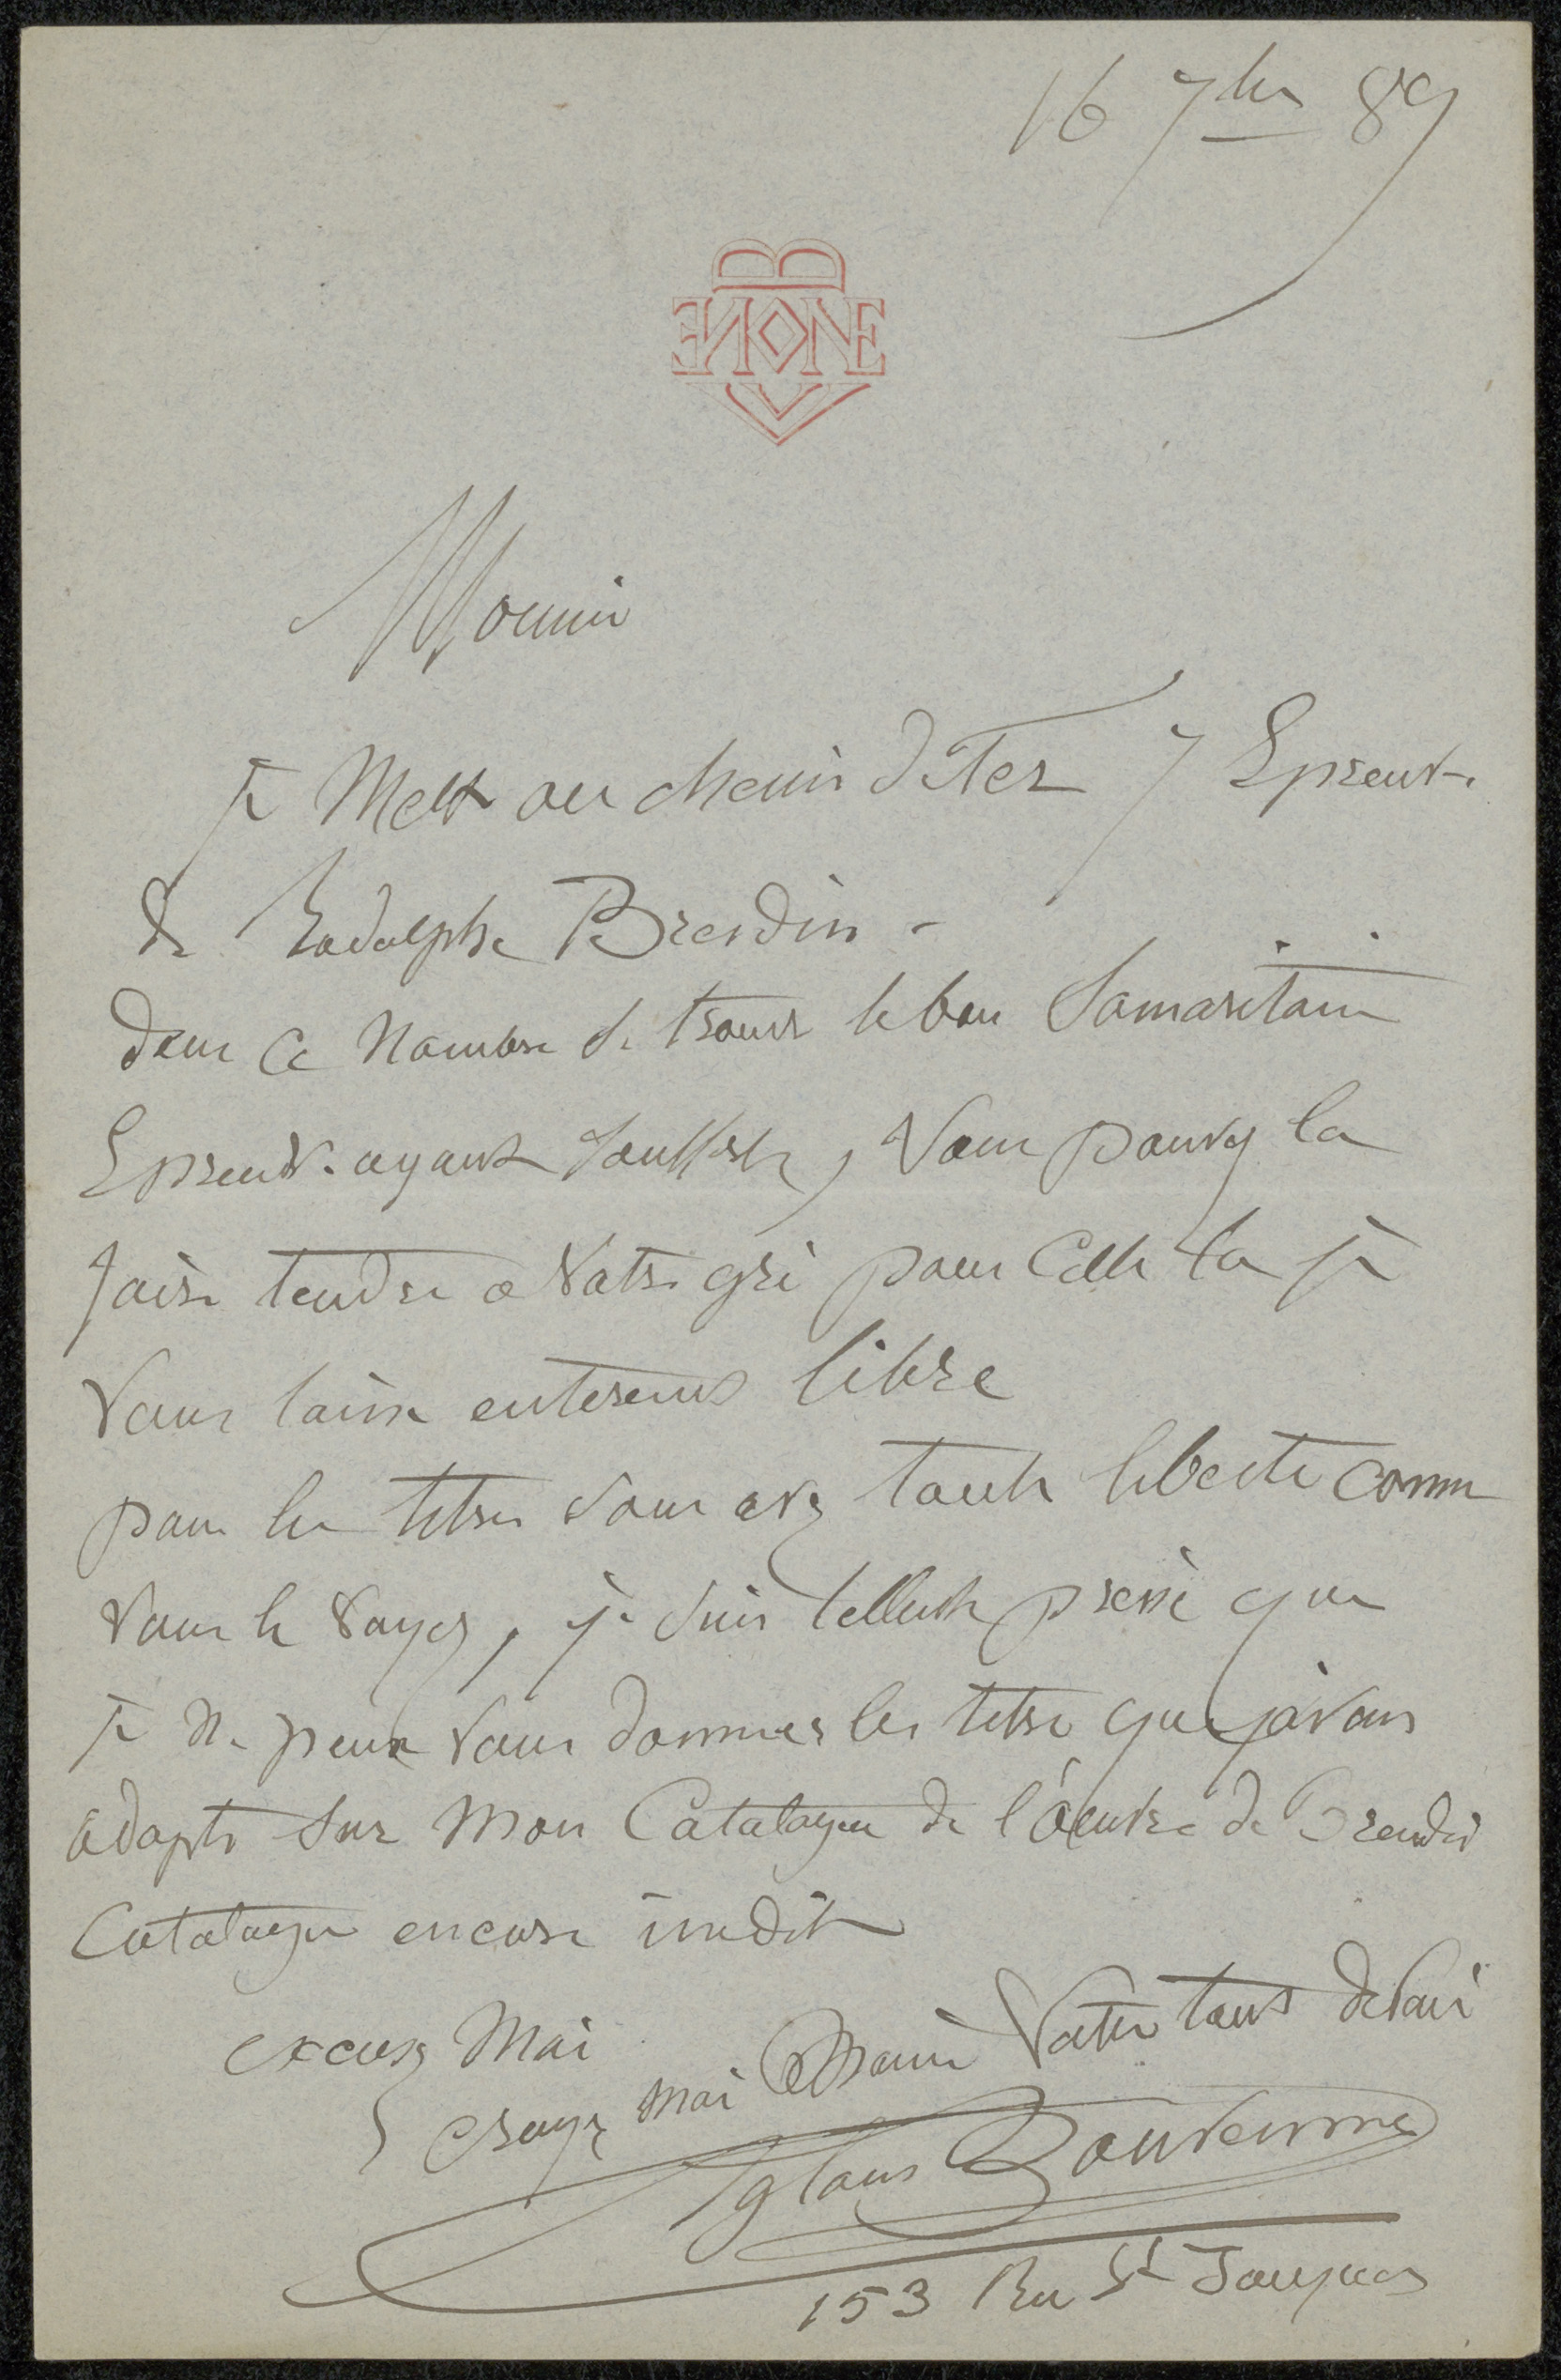 16 7bre 89
BONNE V
Monsieur
Je Mets au chemin de Fer 7 Epreuves
de Rodolphe Bresdin -
dans ce Nombre se trouve le bon Samaritain
Epreuve ayant souffert, vous pouvez la
faire tendre a votre gré pour celle la je
vous laisse entierement libre
pour les titres vous avez toute liberte comme
vous le voyez, je suis tellement pressé que
je ne peux vous donner les titres que j'avais
adopté sur mon Catalogue de l'œuvre de Bresdin
Catalogue encore inedit
excusez moi
croyez moi Monsieur Votre tout devoué
Aglaus Bouvenne
153 Rue St Jacques